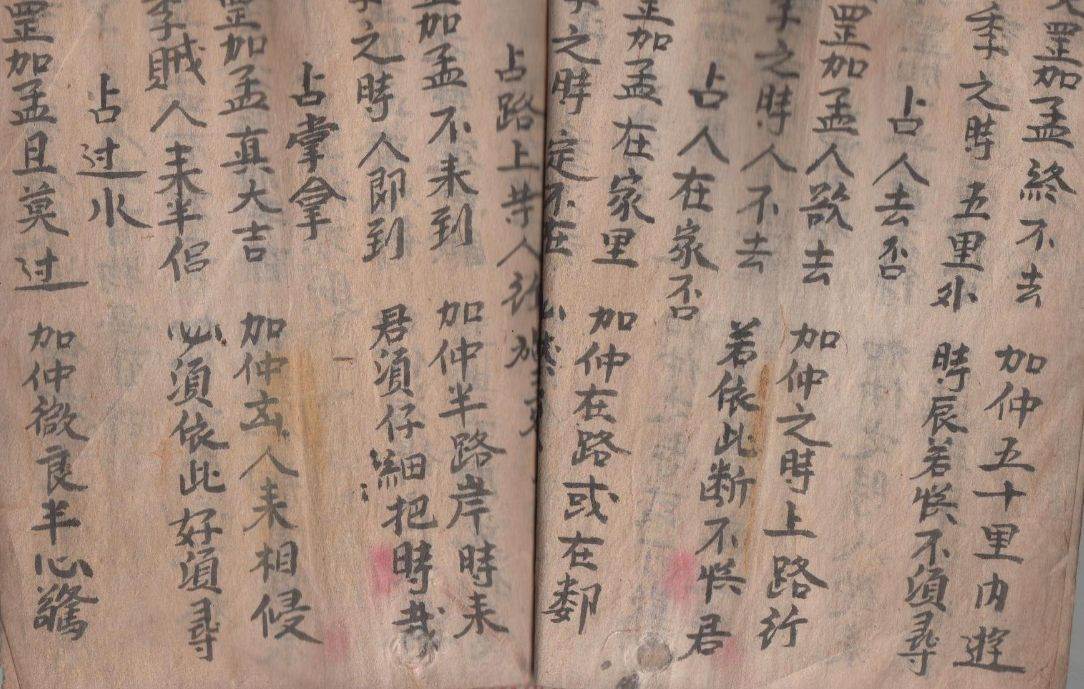 罡加孟終不去 加仲五十里内遊
季之時五里外 時辰若悮不須尋
占人去否
罡加孟人欲去 加仲之時上路行
季之時人不去 若依此断不悮君
占人在家否
罡加孟在家里 加仲在路或在鄰
之時定不在
占路上等人行
加孟不来到 加仲半路岸時来
之時人即到 君須仔細把時哉
占掌拿
罡加孟真大吉 加仲玄人来相侵
季賊人来半侣 必須依此好須尋
占过水
罡加孟且莫过 加仲微良半心驚